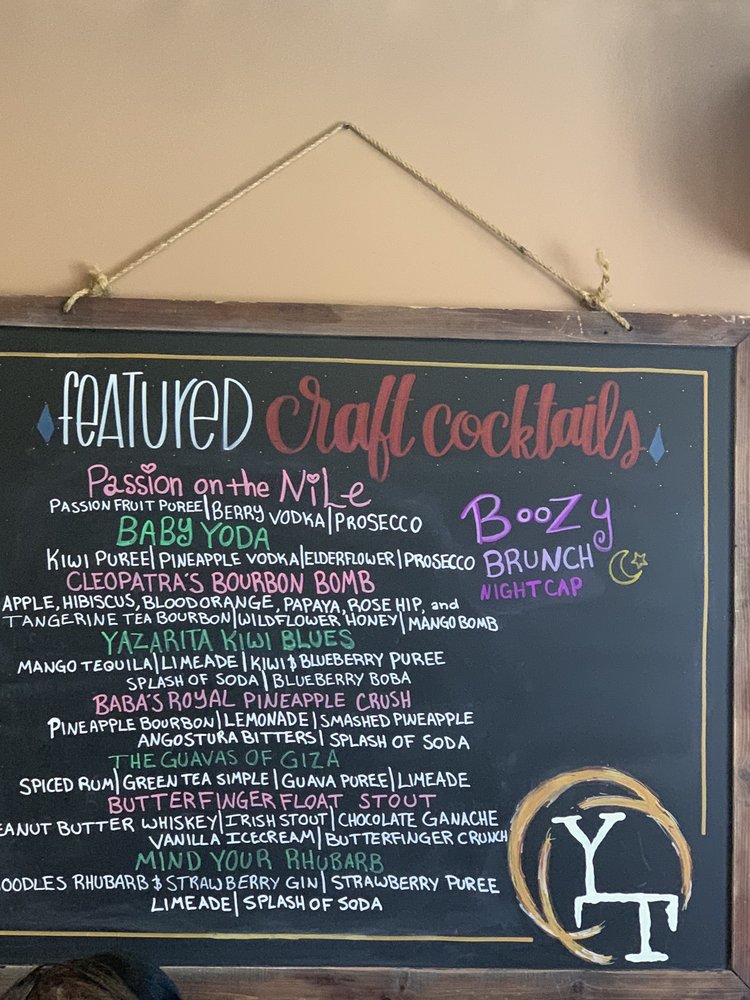 FEATURED craft cocktails
Passion on the NiLe
PASSION FRUIT PUREE|BERRY VODKA|PROSECCO
BABY YODA
KIWI PUREE|PINEAPPLE VODKA|ELDERFLOWER|PROSECCO
CLEOPATRA'S BOURBON BOMB
APPLE, HIBISCUS, BLOOD ORANGE, PAPAYA, ROSE HIP, and
TANGERINE TEA BOURBON|WILDFLOWER HONEY|MANGO BOMB
YAZARITA KIWI BLUES
MANGO TEQUILA|LIMEADE|KIWI & BLUEBERRY PUREE
SPLASH OF SODA|BLUEBERRY BOBA
BABA'S ROYAL PINEAPPLE CRUSH
PINEAPPLE BOURBON|LEMONADE|SMASHED PINEAPPLE
ANGOSTURA BITTERS|SPLASH OF SODA
THE GUAVAS OF GIZA
SPICED RUM|GREEN TEA SIMPLE|GUAVA PUREE|LIMEADE
BUTTERFINGER FLOAT STOUT
EANUT BUTTER WHISKEY|IRISH STOUT|CHOCOLATE GANACHE
VANILLA ICECREAM|BUTTERFINGER CRUNCH
MIND YOUR RHUBARB
OODLES RHUBARB & STRAWBERRY GIN|STRAWBERRY PUREE
LIMEADE|SPLASH OF SODA
BOOZY
BRUNCH
NIGHTCAP
YT